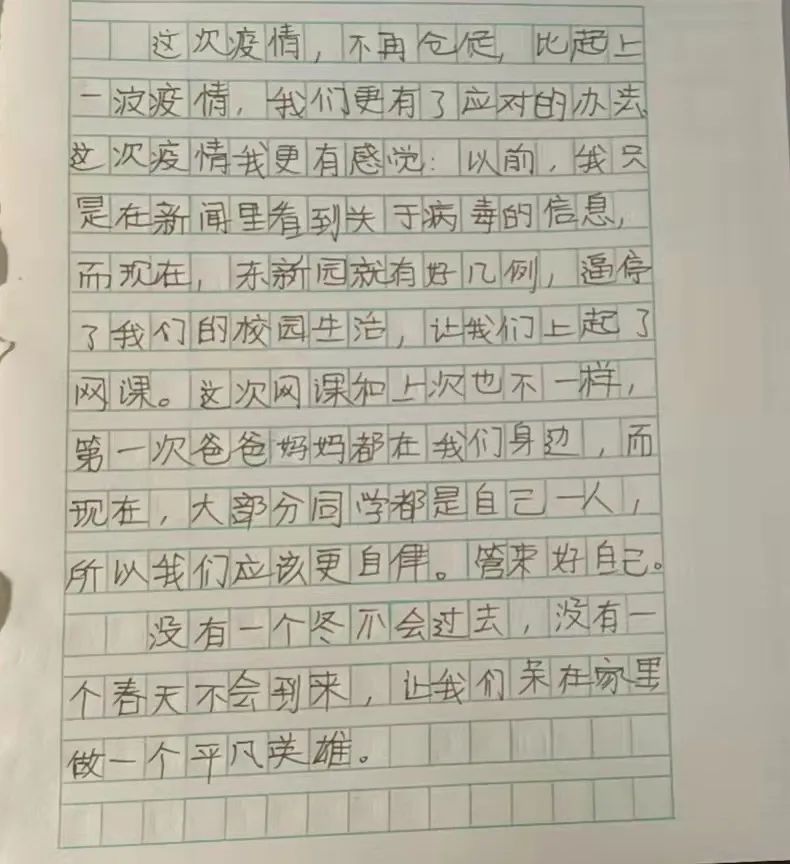 这次疫情，不再仓促，比起上
一波疫情，我们更有了应对的办法。
这次疫情我更有感觉：以前，我只
是在新闻里看到关于病毒的信息，
而现在，东新园就有好几例，逼停
了我们的校园生活，让我们上起了
网课。这次网课和上次也不一样，
第一次爸爸妈妈都在我们身边，而
现在，大部分同学都是自己一人，
所以我们应该更自律。管束好自己。
没有一个冬不会过去，没有一
个春天不会到来，让我们呆在家里
做一个平凡英雄。